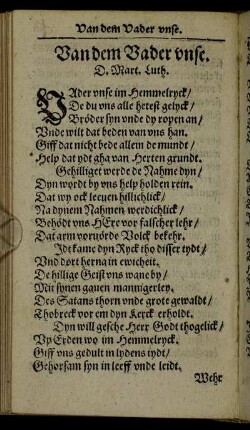 Van dem Vader vnse.
Van dem Vader vnse.
D. Mart. Luth.
VAder vnse im Hemmelryck/
De du vns alle hetest gelyck/
Bröder syn vnde dy ropen an/
Vnde wilt dat beden van vns han.
Giff dat nicht bede allein de mundt/
Help dat ydt gha van Herten grundt.
Gehilliget werde de Nahme dyn/
Dyn wordt by vns help holden rein.
Dat wy ock leuen hillichlick/
Na dynem Nahmen werdichlick/
Behödt vns HEre vor falscher lehr/
Dat arm vorförde Volck bekehr.
Idt kame dyn Ryck tho disser tydt/
Vnd dort herna in ewicheit.
De hillige Geist vns wane by/
Mit synen gauen mannigerley.
Des Satans thorn vnde grote gewaldt/
Thobreck vor em dyn Kerck erholdt.
Dyn will gesche Herr Godt thogelick/
Vp Erden wo im Hemmelryck.
Giff vns gedult in lydens tydt/
Gehorsam syn in leeff vnde leidt.
Wehr